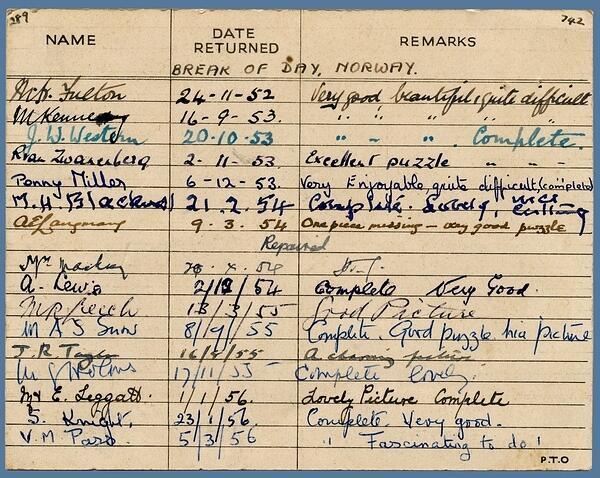 789 742
NAME DATE RETURNED REMARKS
BREAK OF DAY, NORWAY.
Fulton 24-11-52 Very good beautiful, quite difficult
McKenney 16-9-53. " " " "
J. W. Western 20.10.53 " " " " Complete.
Ryan Zwanenberg 2-11-53. Excellent puzzle " " "
Penny Miller 6-12-53. Very Enjoyable, quite difficult (complete)
M. H. Blackwell 21.2.54 Complete. Lovely, nice cutting
AE Langmany 9.3.54 One piece missing - very good puzzle
Repaired
Mrs Mackay
A. Lewis 54 Complete Very Good.
Leech 13/3/55 Good Picture
M A S Snow 8/ /55 Complete. Good puzzle nice picture
J. R. Taylor 16/ /55 A charming picture
17/11/55 Complete lovely.
Mrs E. Leggatt. 1/1/56. Lovely Picture Complete
S. Knight, 23/1/56. Complete. Very good.
V. M. 5/3/56 " Fascinating to do!
P.T.O